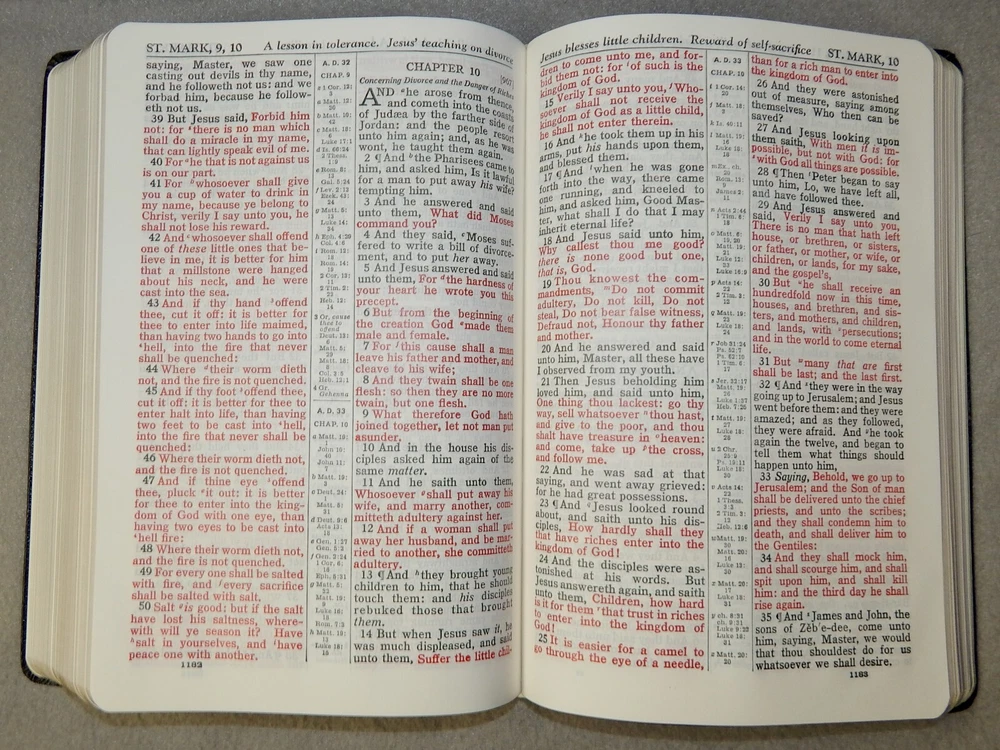 ST. MARK, 9, 10
A lesson in tolerance. Jesus' teaching on divorce
saying, Master, we saw one
casting out devils in thy name,
and he followeth not us: and we
forbad him, because he follow-
eth not us.
39 But Jesus said, Forbid him
not: for there is no man which
shall do a miracle in my name,
that can lightly speak evil of me.
40 For he that is not against us
is on our part.
41 For whosoever shall give
you a cup of water to drink in
my name, because ye belong to
Christ, verily I say unto you, he
shall not lose his reward.
42 And whosoever shall offend
one of these little ones that be-
lieve in me, it is better for him
that a millstone were hanged
about his neck, and he were
cast into the sea.
43 And if thy hand offend
thee, cut it off: it is better for
thee to enter into life maimed,
than having two hands to go into
hell, into the fire that never
shall be quenched:
44 Where their worm dieth
not, and the fire is not quenched.
45 And if thy foot offend thee,
cut it off: it is better for thee to
enter halt into life, than having
two feet to be cast into hell,
into the fire that never shall be
quenched:
46 Where their worm dieth not,
and the fire is not quenched.
47 And if thine eye offend
thee, pluck it out: it is better
for thee to enter into the king-
dom of God with one eye, than
having two eyes to be cast into
hell fire:
48 Where their worm dieth not,
and the fire is not quenched.
49 For every one shall be salted
with fire, and every sacrifice
shall be salted with salt.
50 Salt is good: but if the salt
have lost his saltness, where-
with will ye season it? Have
salt in yourselves, and have
peace one with another.
1182
A. D. 32
CHAP. 9
A. D. 33
CHAP. 10
CHAPTER 10
Concerning Divorce and the Danger of Riches
AND he arose from thence,
and cometh into the coasts
of Judæa by the farther side of
Jordan: and the people resort
unto him again; and, as he was
wont, he taught them again.
2 ¶ And the Pharisees came to
him, and asked him, Is it lawful
for a man to put away his wife?
tempting him.
3 And he answered and said
unto them, What did Moses
command you?
4 And they said, Moses suf-
fered to write a bill of divorce-
ment, and to put her away.
5 And Jesus answered and said
unto them, For the hardness of
your heart he wrote you this
precept.
6 But from the beginning of
the creation God made them
male and female.
7 For this cause shall a man
leave his father and mother, and
cleave to his wife;
8 And they twain shall be one
flesh: so then they are no more
twain, but one flesh.
9 What therefore God hath
joined together, let not man put
asunder.
10 And in the house his dis-
ciples asked him again of the
same matter.
11 And he saith unto them,
Whosoever shall put away his
wife, and marry another, com-
mitteth adultery against her.
12 And if a woman shall put
away her husband, and be mar-
ried to another, she committeth
adultery.
13 ¶ And they brought young
children to him, that he should
touch them: and his disciples
rebuked those that brought
them.
14 But when Jesus saw it, he
was much displeased, and said
unto them, Suffer the little chil-
Jesus blesses little children. Reward of self-sacrifice
ST. MARK, 10
dren to come unto me, and for-
bid them not: for of such is the
kingdom of God.
15 Verily I say unto you, Who-
soever shall not receive the
kingdom of God as a little child,
he shall not enter therein.
16 And he took them up in his
arms, put his hands upon them,
and blessed them.
17 ¶ And when he was gone
forth into the way, there came
one running, and kneeled to
him, and asked him, Good Mas-
ter, what shall I do that I may
inherit eternal life?
18 And Jesus said unto him,
Why callest thou me good?
there is none good but one,
that is, God.
19 Thou knowest the com-
mandments, Do not commit
adultery, Do not kill, Do not
steal, Do not bear false witness,
Defraud not, Honour thy father
and mother.
20 And he answered and said
unto him, Master, all these have
I observed from my youth.
21 Then Jesus beholding him
loved him, and said unto him,
One thing thou lackest: go thy
way, sell whatsoever thou hast,
and give to the poor, and thou
shalt have treasure in heaven:
and come, take up the cross,
and follow me.
22 And he was sad at that
saying, and went away grieved:
for he had great possessions.
23 ¶ And Jesus looked round
about, and saith unto his dis-
ciples, How hardly shall they
that have riches enter into the
kingdom of God!
24 And the disciples were as-
tonished at his words. But
Jesus answereth again, and saith
unto them, Children, how hard
is it for them that trust in riches
to enter into the kingdom of
God!
25 It is easier for a camel to
go through the eye of a needle,
A. D. 33
CHAP. 10
than for a rich man to enter into
the kingdom of God.
26 And they were astonished
out of measure, saying among
themselves, Who then can be
saved?
27 And Jesus looking upon
them saith, With men it is im-
possible, but not with God: for
with God all things are possible.
28 ¶ Then Peter began to say
unto him, Lo, we have left all,
and have followed thee.
29 And Jesus answered and
said, Verily I say unto you,
There is no man that hath left
house, or brethren, or sisters,
or father, or mother, or wife, or
children, or lands, for my sake,
and the gospel's,
30 But he shall receive an
hundredfold now in this time,
houses, and brethren, and sis-
ters, and mothers, and children,
and lands, with persecutions;
and in the world to come eternal
life.
31 But many that are first
shall be last; and the last first.
32 ¶ And they were in the way
going up to Jerusalem; and Jesus
went before them: and they were
amazed; and as they followed,
they were afraid. And he took
again the twelve, and began to
tell them what things should
happen unto him,
33 Saying, Behold, we go up to
Jerusalem; and the Son of man
shall be delivered unto the chief
priests, and unto the scribes;
and they shall condemn him to
death, and shall deliver him to
the Gentiles:
34 And they shall mock him,
and shall scourge him, and shall
spit upon him, and shall kill
him: and the third day he shall
rise again.
35 ¶ And James and John, the
sons of Zĕb'e-dee, come unto
him, saying, Master, we would
that thou shouldest do for us
whatsoever we shall desire.
1183